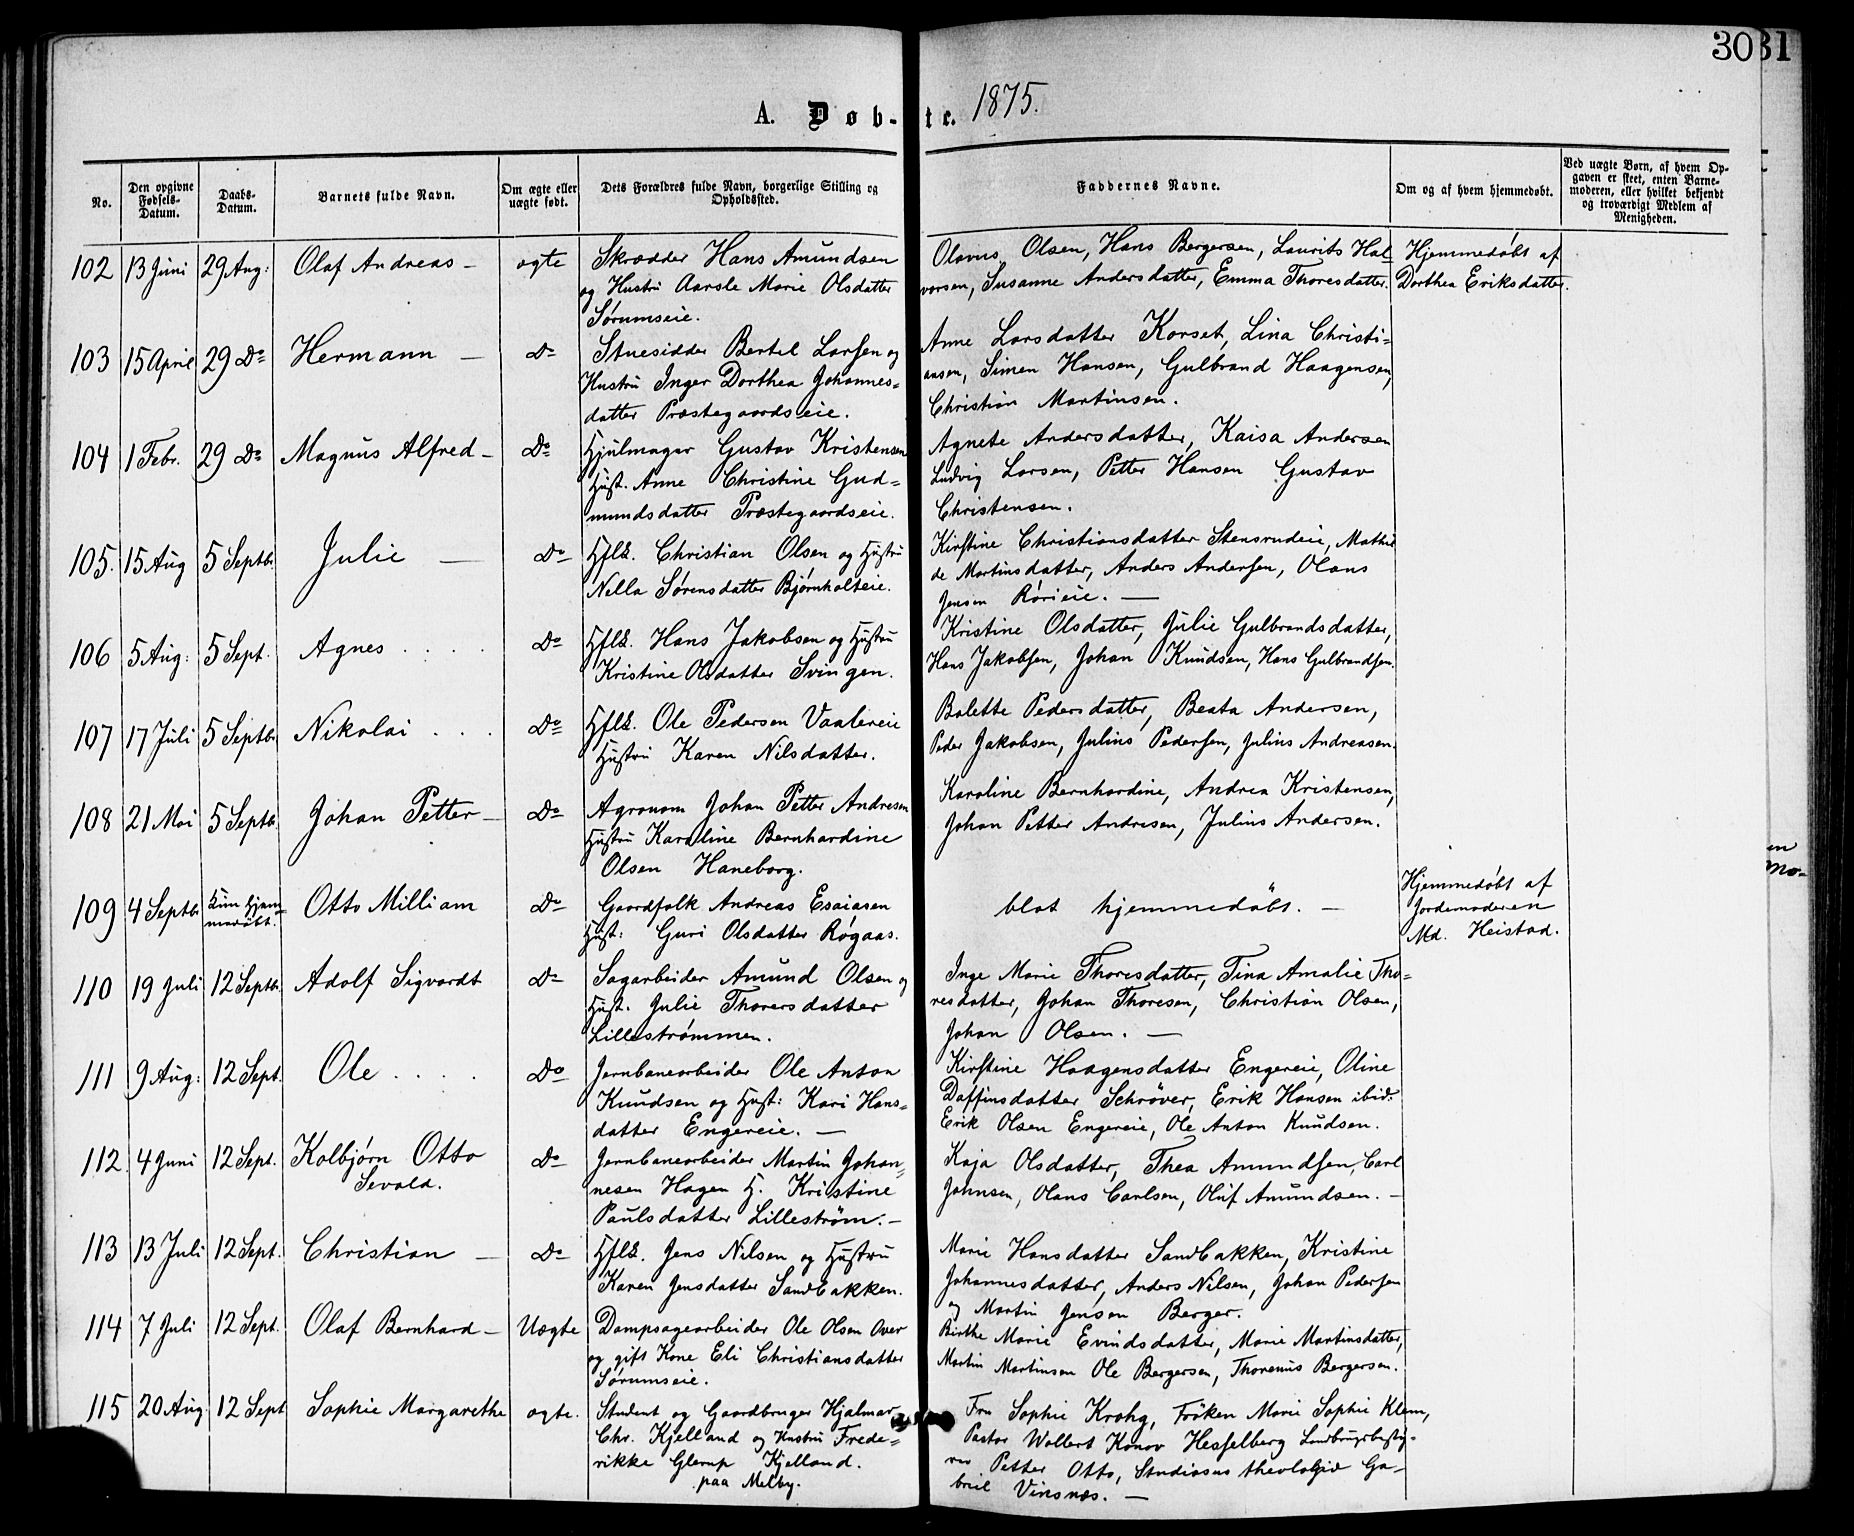 30
31
A. Døb-
te. 1875.
No.
Den opgivne Fødsels-Datum.
Daabs-Datum.
Barnets fulde Navn.
Om ægte eller uægte født.
Dets Forældres fulde Navn, borgerlige Stilling og Opholdssted.
Faddernes Navne.
Om og af hvem hjemmedøbt.
Ved uægte Børn, af hvem Opgaven er skeet, enten Barnemoderen, eller hvilket bekjendt og troværdigt Medlem af Menigheden.
102 13 Juni 29 Aug: Olaf Andreas – ægte
Skrædder Hans Amundsen
og Hustru Aarsle Marie Olsdatter
Sørumseie.
Olavus Olsen, Hans Bergersen, Laurits Hal-
vorsen, Susanne Andersdatter, Emma Thoresdatter.
Hjemmedøbt af
Dorthea Eriksdatter.
103 15 April 29 Do Hermann – Do
Stuesidder Bertel Larsen og
Hustru Inger Dorthea Johannes=
datter Præstegaardseie.
Anne Larsdatter Korset, Lina Christi=
ansen, Simen Hansen, Gulbrand Haagensen,
Christian Martinsen.
104 1 Febr. 29 Do Magnus Alfred – Do
Hjulmager Gustav Kristensen
Hust. Anne Christine Gud=
mundsdatter Præstegaardseie.
Agnete Andersdatter, Kaisa Andersen
Ludvig Larsen, Petter Hansen Gustav
Christensen.
105. 15 Aug 5 Septbr. Julie — Do
Hflk. Christian Olsen og Hustru
Nella Sørensdatter Bjørnholteie.
Kirstine Christiansdatter Stensrudeie, Mathil
de Martinsdatter, Anders Andersen, Olaus
Jensen Rørieie. —
106 5 Aug: 5 Sept. Agnes . . . . Do
Hflk. Hans Jakobsen og Hustru
Kristine Olsdatter Svingen.
Kristine Olsdatter, Julie Gulbrandsdatter,
Hans Jakobsen, Johan Knudsen, Hans Gulbrandsen.
107 17 Juli 5 Septbr. Nikolai . . . Do
Hflk. Ole Pedersen Vaalereie
Hustru Karen Nilsdatter.
Bolette Pedersdatter, Beata Andersen,
Peder Jakobsen, Julius Pedersen, Julius Andreasen.
108 21 Mai 5 Septbr. Johan Petter – Do
Agronom Johan Petter Andresen
Hustru Karoline Bernhardine
Olsen Haneborg.
Karoline Bernhardine, Andrea Kristensen,
Johan Petter Andresen, Julius Andersen.
109 4 Septbr Kun hjem=
medøbt. Otto Milliam Do
Gaardfolk Andreas Esaiasen
Hust: Guri Olsdatter Røgaas.
blot hjemmedøbt. –
Hjemmedøbt af
Jordemoderen
Md. Heistad.
110 19 Juli 12 Septbr. Adolf Sigvardt Do
Sagarbeider Amund Olsen og
Hust. Julie Thorersdatter
Lillestrømmen.
Inge Marie Thoresdatter, Tina Amalie Tho=
resdatter, Johan Thoresen, Christian Olsen,
Johan Olsen. —
111 9 Aug: 12 Sept. Ole . . . . Do
Jernbanearbeider Ole Anton
Knudsen og Hust: Kari Hans=
datter Engereie. —
Kirstine Haagensdatter Engereie, Oline
Daffinsdatter Schrøver, Erik Hansen ibid.
Erik Olsen Engereie, Ole Anton Knudsen.
112. 4 Juni 12 Sept. Kolbjørn Otto
Sevald. Do
Jernbanearbeider Martin Johan=
nesen Hagen H. Kristine
Paulsdatter Lillestrøm. –
Kaja Olsdatter, Thea Amundsen, Carl
Johnsen, Olaus Carlsen, Oluf Amundsen. –
113 13 Juli 12 Sept. Christian – Do
Hflk. Jens Nilsen og Hustru
Karen Jensdatter Sandbakken.
Marie Hansdatter Sandbakken, Kristine
Johannesdatter, Anders Nilsen, Johan Pedersen
og Martin Jensen Berger.
114 7 Juli 12 Sept. Olaf Bernhard – Uægte
Dampsagearbeider Ole Olsen Aver
og gift Kone Eli Christiansdatter
Sørumseie.
Birthe Marie Evindsdatter, Marie Martinsdatter,
Martin Martinsen Ole Bergersen, Thorenus Bergersen.
115 20 Aug 12 Sept Sophie Margarethe ægte.
Student og Gaardbruger Hjalmar
Chr. Kjelland og Hustru Frede=
rikke Glerup Kjelland.
paa Melby.
Fru Sophie Krohg, Frøken Marie Sophie Klem,
Pastor Wollert Konov Hesselberg Landbrugsbesty-
rer Petter Otto, Studiosus theologiæ Ga-
briel Vinsnæs. —